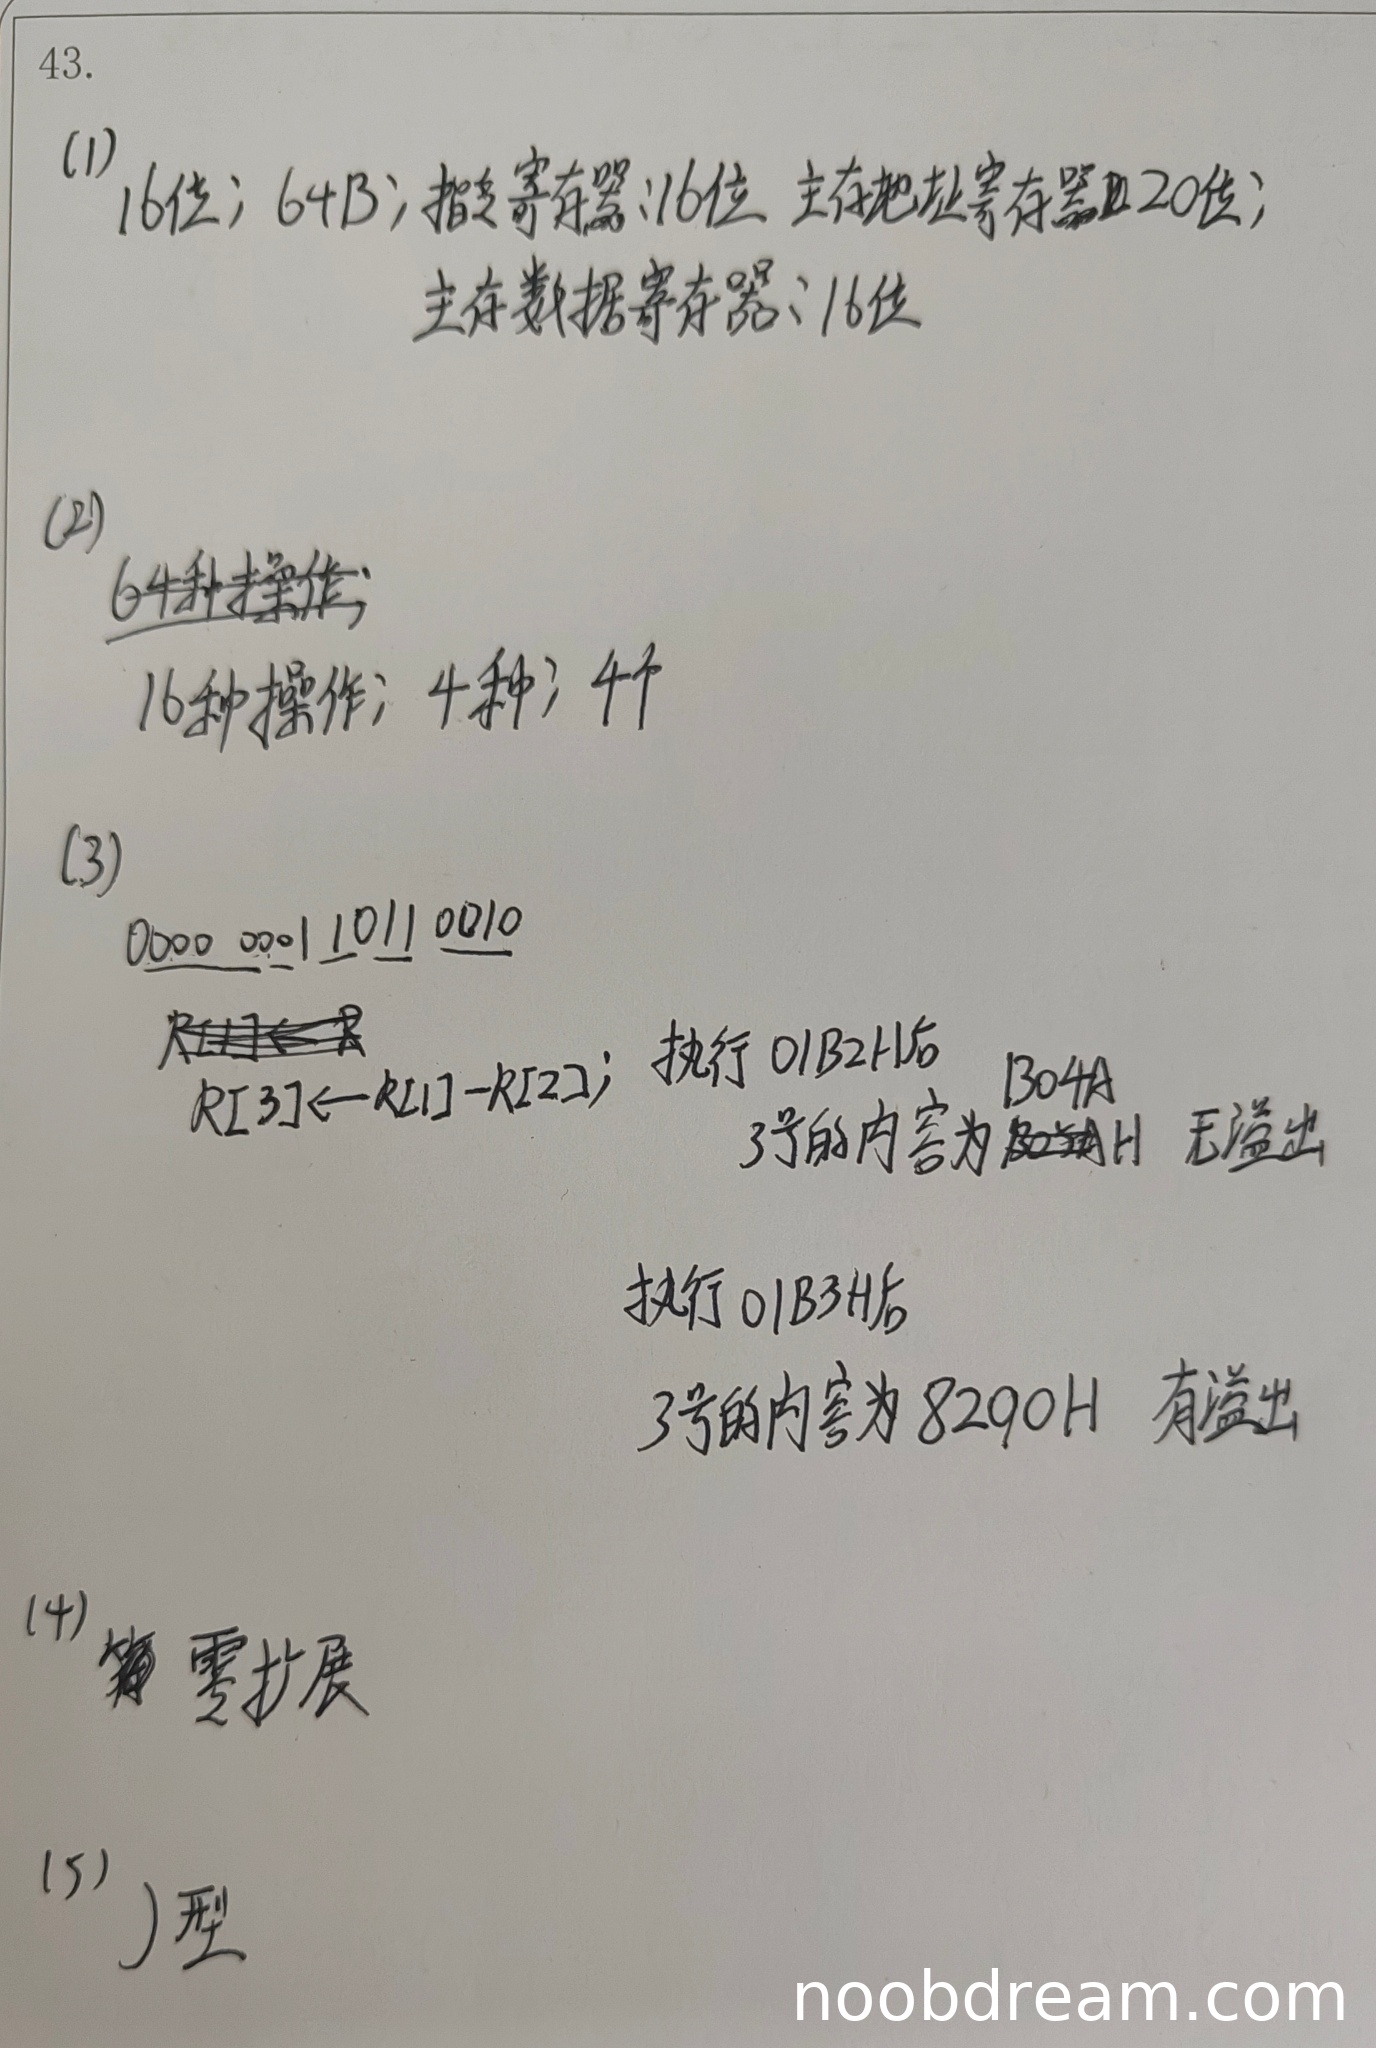 43.
(1)
16位; 64B; 指令寄存器:16位 主存地址寄存器 20位;
主存数据寄存器: 16位
(2)
64种操作;
16种操作; 4种; 4个
(3)
0000 0001 1011 0010
R[1]← R
R[3]←R[1]-R[2]; 执行01B2H后
B04A
3号的内容为 H 无溢出
执行01B3H后
3号的内容为8290H 有溢出
(4)
零扩展
(5)
J型
noobdream.com